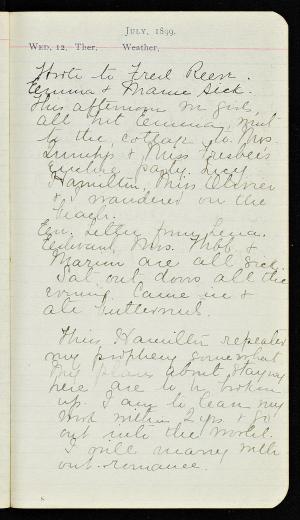 JULY, 1899.
WED. 12, Ther. Weather,
Wrote to Fred Reen.
Emma & Mame sick.
This afternoon girls
all but Emma, went
to the cottage to Mrs.
& Miss
party. Lucy
Hamilton, Miss Olivier
& I wandered on the
beach.
Eve. Letter from Lena.
Edward, Mrs. Mibb, &
Marion are all sick.
Sat out doors all the
evening. Came in &
ate butternuts.
Miss Hamilton repeated
my prophecy somewhat
My plans about staying
here are to be broken
up. I am to leave my
work within 2 yrs. & go
out into the world.
I will marry with
out romance.